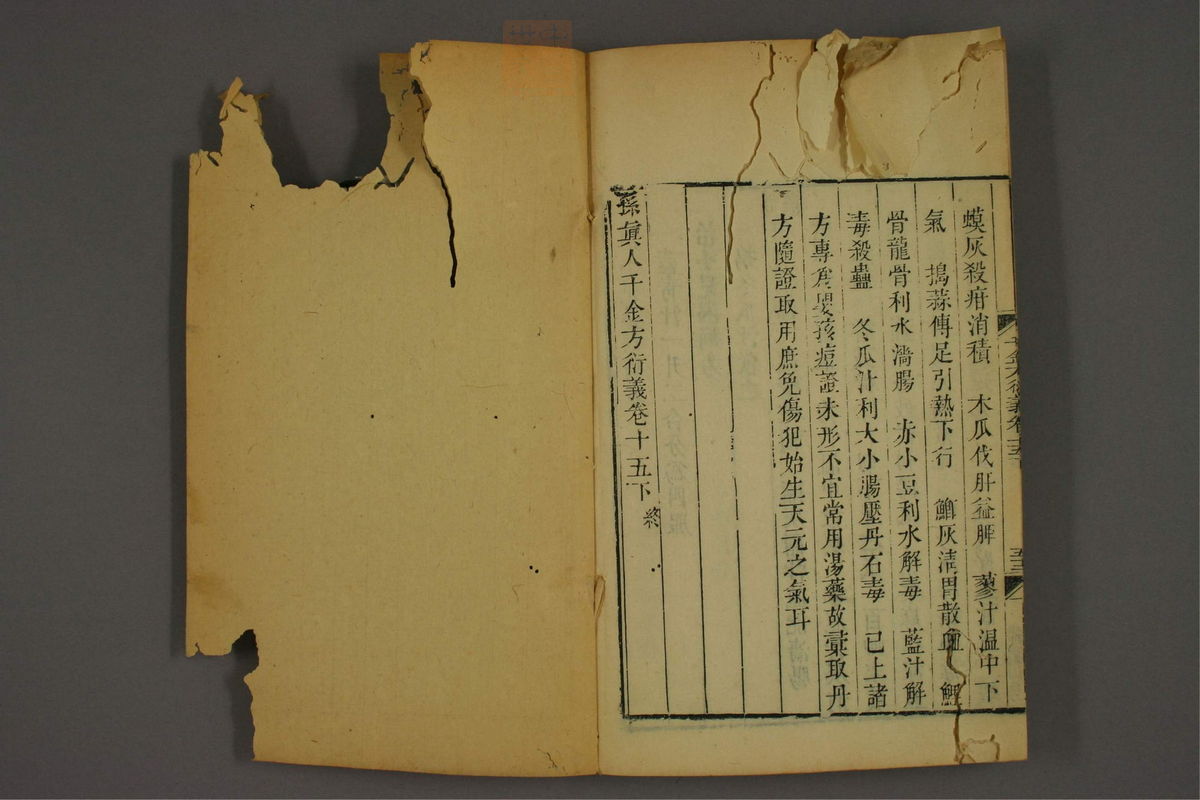 蟆灰殺疳消積　木瓜伐肝益脾　蓼汁温中下
氣　搗蒜傅足引熱下行　鯽灰清胃散血　鯉
骨龍骨利水濇腸　赤小豆利水解毒　藍汁解
毒殺蠱　冬瓜汁利大小腸壓丹石毒　已上諸
方專爲嬰孩痘證未形不宜常用湯藥故彙取丹
方隨證取用庶免傷犯始生天元之氣耳
孫眞人千金方衍義卷十五下 終